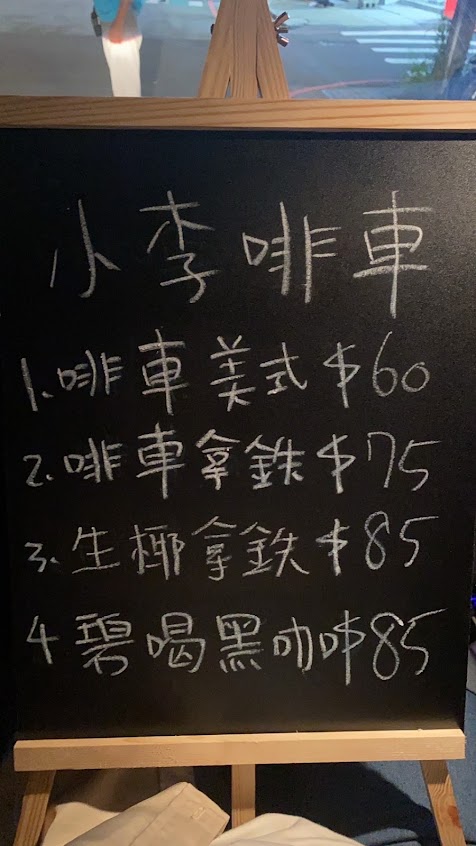 小李啡車
1.啡車美式$60
2.啡車拿鉄$75
3.生椰拿鉄$85
4 碧喝黑咖$85